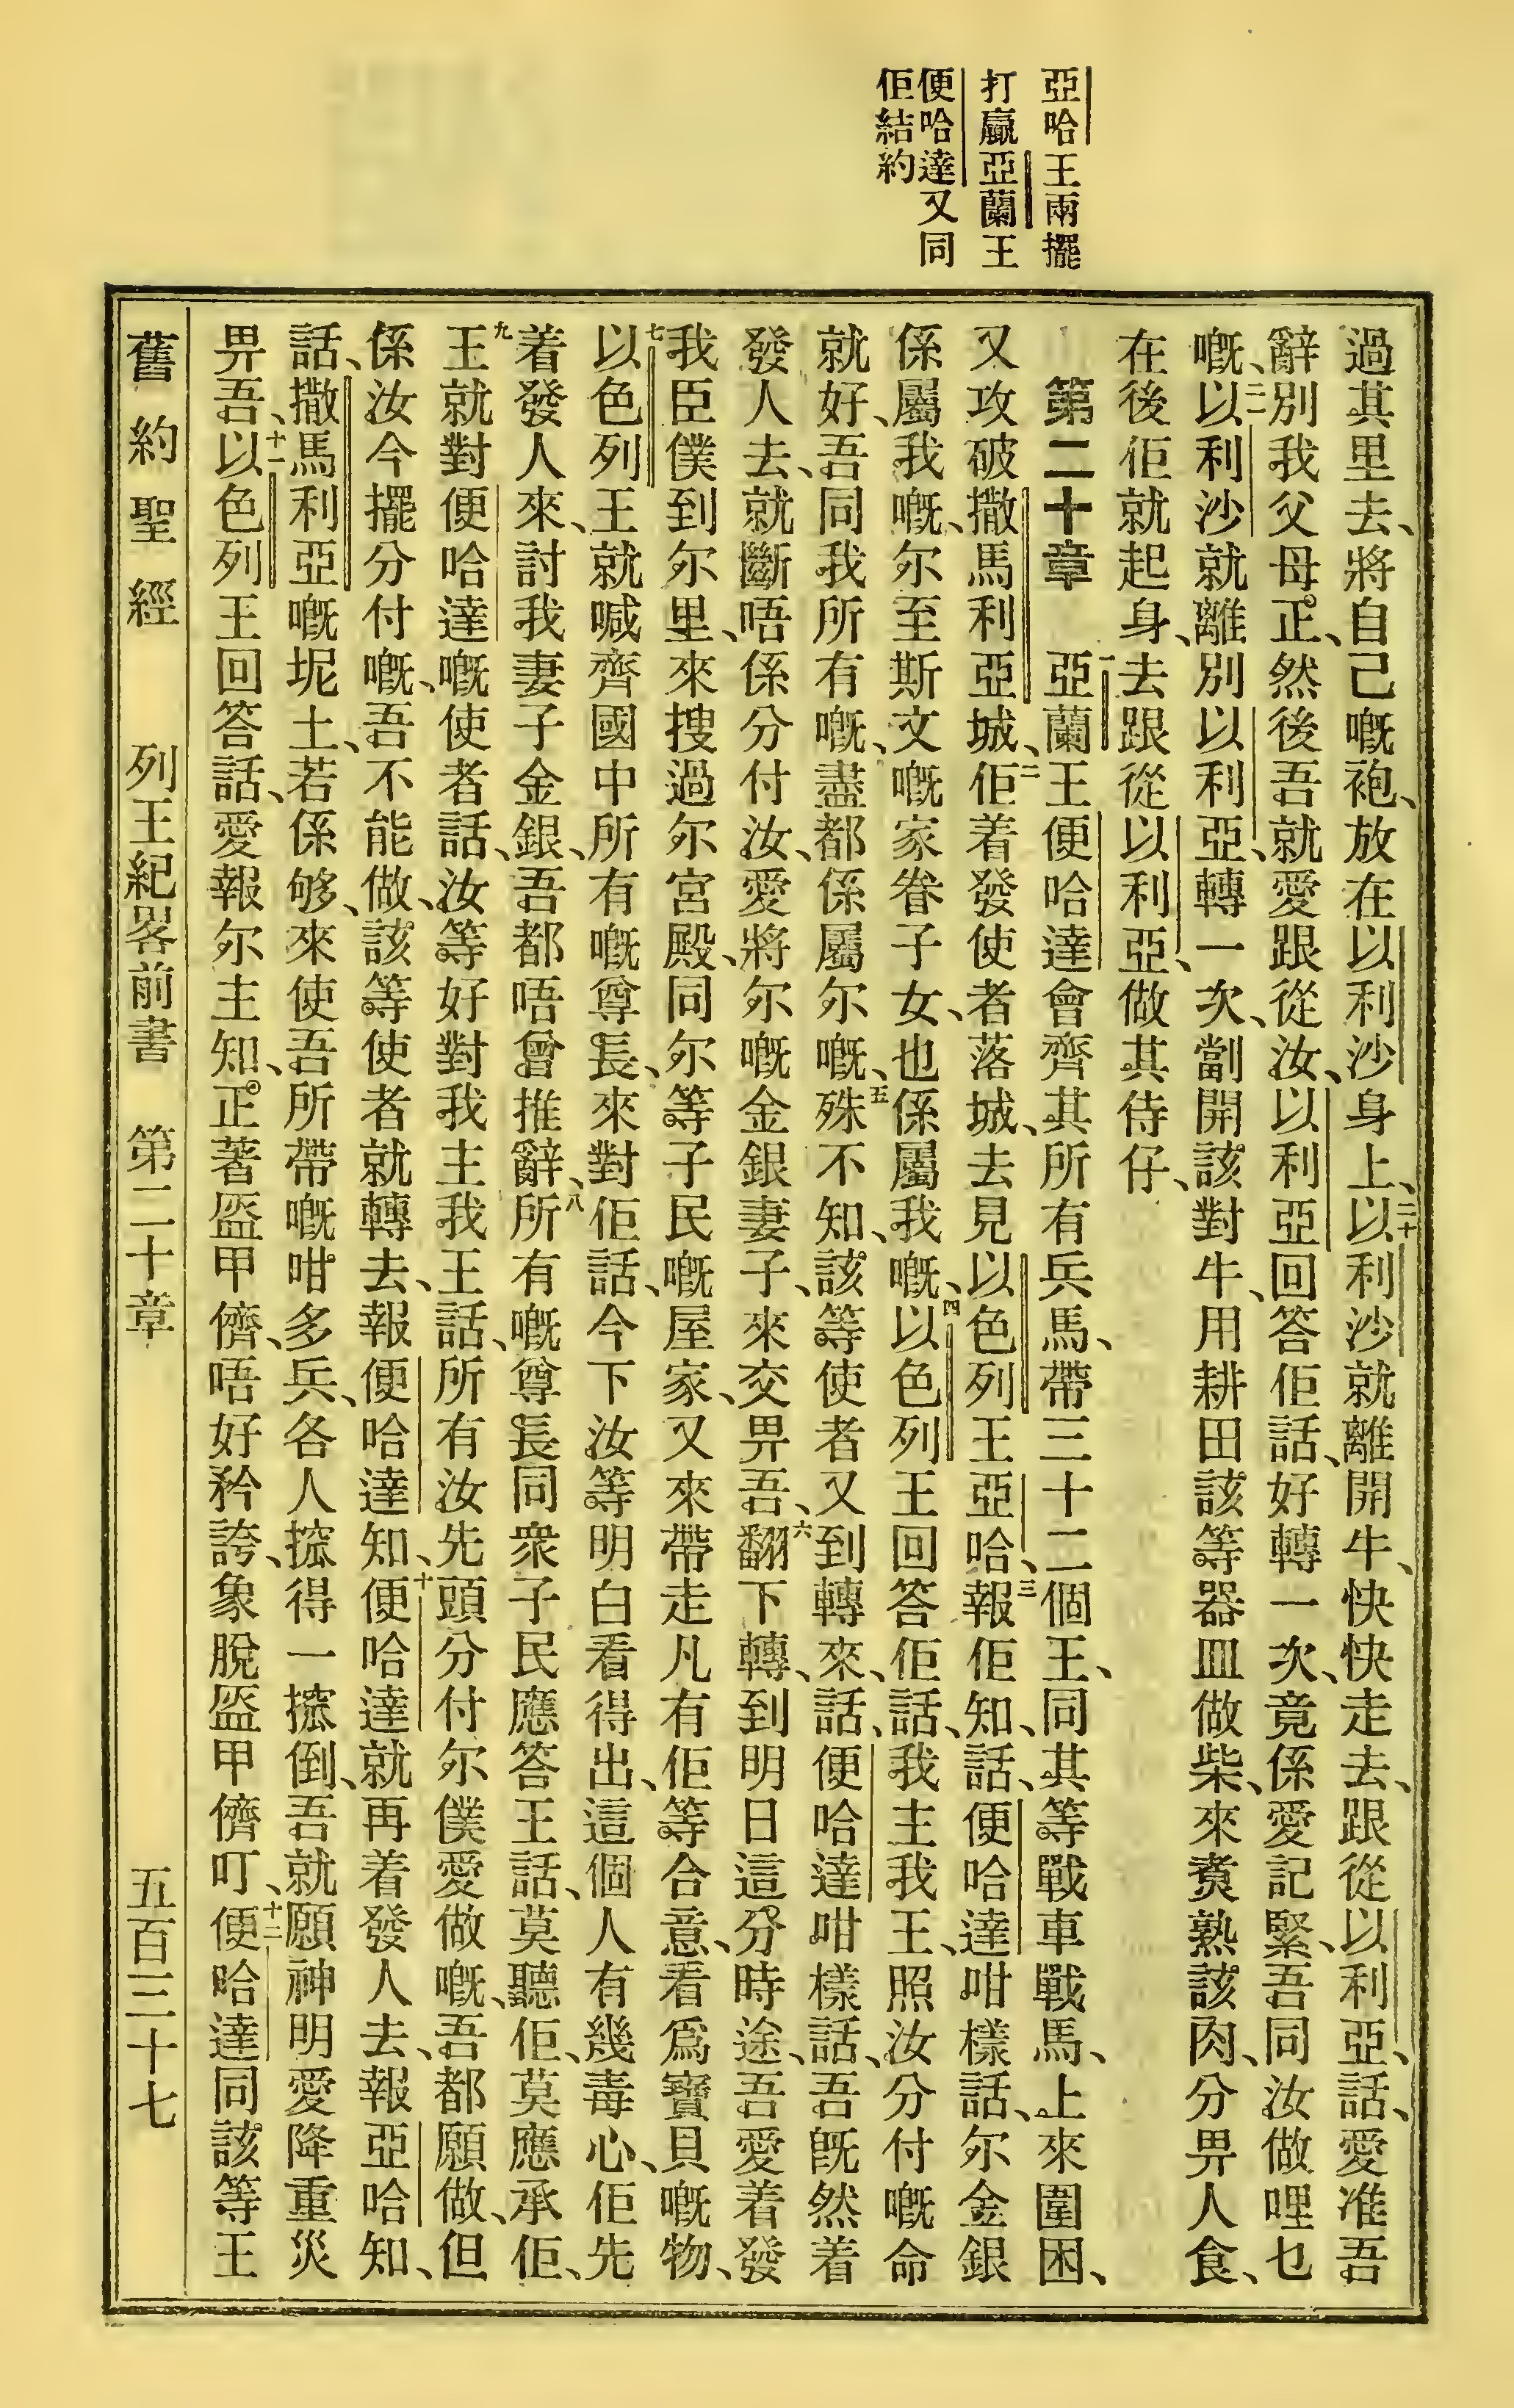 亞哈王兩擺
打贏亞蘭王
便哈達又同
佢結約
過其里去、將自己嘅袍、放在以利沙身上、二十以利沙就離開牛、快快走去、跟從以利亞、話、愛准吾
辭別我父母、正然後吾就愛跟從汝、以利亞回答佢話、好轉一次、竟係愛記緊、吾同汝做哩乜
嘅、二一以利沙就離別以利亞、轉一次、劏開該對牛、用耕田該等器皿做柴、來煑熟該肉、分畀人食、
在後佢就起身、去跟從以利亞、做其侍仔、
第二十章 一亞蘭王便哈達會齊其所有兵馬、帶三十二個王、同其等戰車戰馬、上來圍困、
又攻破撒馬利亞城、二佢着發使者落城、去見以色列王亞哈、三報佢知、話、便哈達咁樣話、尔金銀
係屬我嘅、尔至斯文嘅家眷子女、也係屬我嘅、四以色列王回答佢話、我主我王、照汝分付嘅命
就好、吾同我所有嘅、盡都係屬尔嘅、五殊不知、該等使者又到轉來、話、便哈達咁樣話、吾旣然着
發人去、就斷唔係分付汝、愛將尔嘅金銀妻子、來交畀吾、六翻下轉、到明日這分時途、吾愛着發
我臣僕到尔里、來搜過尔宮殿、同尔等子民嘅屋家、又來帶走凡有佢等合意、看爲寶貝嘅物、
七以色列王就喊齊國中所有嘅尊長、來對佢話、今下汝等明白看得出、這個人有幾毒心、佢先
着發人來、討我妻子金銀、吾都唔曾推辭、八所有嘅尊長同衆子民應答王話、莫聽佢、莫應承佢、
九王就對便哈達嘅使者話、汝等好對我主我王話、所有汝先頭分付尔僕愛做嘅、吾都願做、但
係汝今擺分付嘅、吾不能做、該等使者就轉去、報便哈達知、十便哈達就再着發人去、報亞哈知、
話、撒馬利亞嘅坭土、若係够、來使吾所帶嘅咁多兵、各人搲得一搲倒、吾就願神明愛降重災
畀吾、十一以色列王回答話、愛報尔主知、正著盔甲儕、唔好矜誇、象脫盔甲儕叮、十二便哈達同該等王
舊約聖經 列王紀畧前書 第二十章 五百三十七